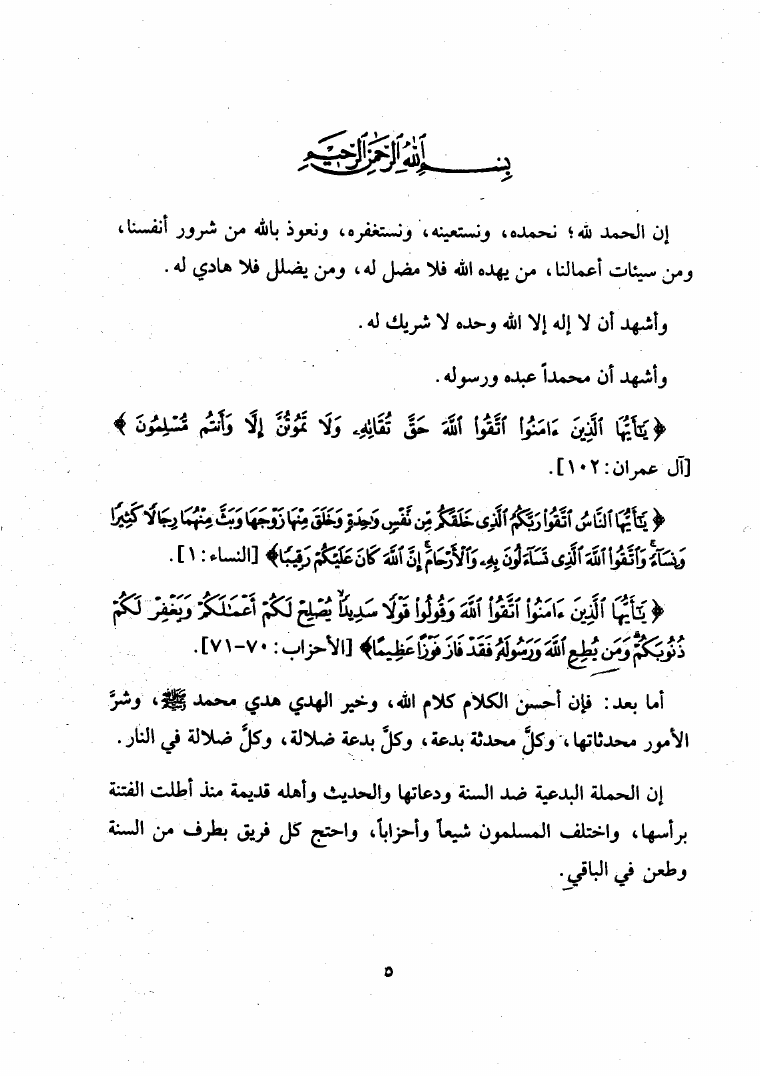 بسم الله الرحمن الرحيم
إن الحمد لله؛ نحمده، ونستعينه، ونستغفره، ونعوذ بالله من شرور أنفسنا،
ومن سيئات أعمالنا، من يهده الله فلا مضل له، ومن يضلل فلا هادي له.
وأشهد أن لا إله إلا الله وحده لا شريك له.
وأشهد أن محمداً عبده ورسوله.
﴿ يَٰٓأَيُّهَا ٱلَّذِينَ ءَامَنُوا۟ ٱتَّقُوا۟ ٱللَّهَ حَقَّ تُقَاتِهِۦ وَلَا تَمُوتُنَّ إِلَّا وَأَنتُم مُّسْلِمُونَ ﴾
[آل عمران: ١٠٢].
﴿ يَٰٓأَيُّهَا ٱلنَّاسُ ٱتَّقُوا۟ رَبَّكُمُ ٱلَّذِى خَلَقَكُم مِّن نَّفْسٍ وَٰحِدَةٍ وَخَلَقَ مِنْهَا زَوْجَهَا وَبَثَّ مِنْهُمَا رِجَالًا كَثِيرًا
وَنِسَآءً ۚ وَٱتَّقُوا۟ ٱللَّهَ ٱلَّذِى تَسَآءَلُونَ بِهِۦ وَٱلْأَرْحَامَ ۚ إِنَّ ٱللَّهَ كَانَ عَلَيْكُمْ رَقِيبًا﴾ [النساء: ١].
﴿ يَٰٓأَيُّهَا ٱلَّذِينَ ءَامَنُوا۟ ٱتَّقُوا۟ ٱللَّهَ وَقُولُوا۟ قَوْلًا سَدِيدًا يُصْلِحْ لَكُمْ أَعْمَٰلَكُمْ وَيَغْفِرْ لَكُمْ
ذُنُوبَكُمْ ۗ وَمَن يُطِعِ ٱللَّهَ وَرَسُولَهُۥ فَقَدْ فَازَ فَوْزًا عَظِيمًا﴾ [الأحزاب: ٧٠-٧١].
أما بعد: فإن أحسن الكلام كلام الله، وخير الهدي هدي محمد ﷺ، وشرَّ
الأمور محدثاتها، وكلَّ محدثة بدعة، وكلَّ بدعة ضلالة، وكلَّ ضلالة في النار.
إن الحملة البدعية ضد السنة ودعاتها والحديث وأهله قديمة منذ أطلت الفتنة
برأسها، واختلف المسلمون شيعاً وأحزاباً، واحتج كل فريق بطرف من السنة
وطعن في الباقي.
٥